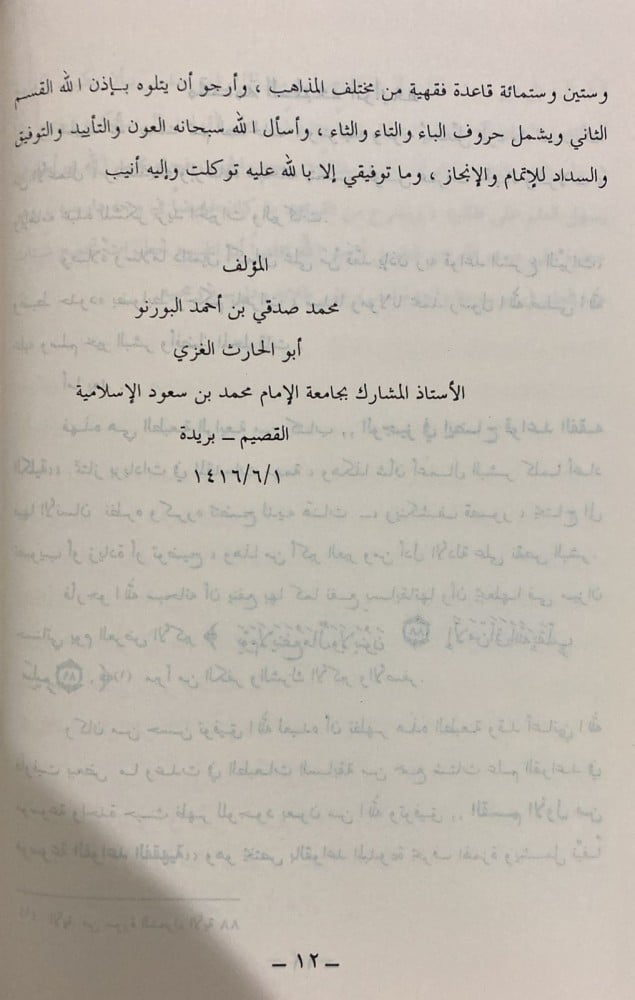 وستين وستمائة قاعدة فقهية من مختلف المذاهب ، وأرجو أن يتلوه بإذن الله القسم
الثاني ويشمل حروف الباء والتاء والثاء ، وأسأل الله سبحانه العون والتأييد والتوفيق
والسداد للإتمام والإنجاز ، وما توفيقي إلا بالله عليه توكلت وإليه أنيب
المؤلف
محمد صدقي بن أحمد البورنو
أبو الحارث الغزي
الأستاذ المشارك بجامعة الإمام محمد بن سعود الإسلامية
القصيم ـ بريدة
١٤١٦/٦/١
ـ ١٢ ـ